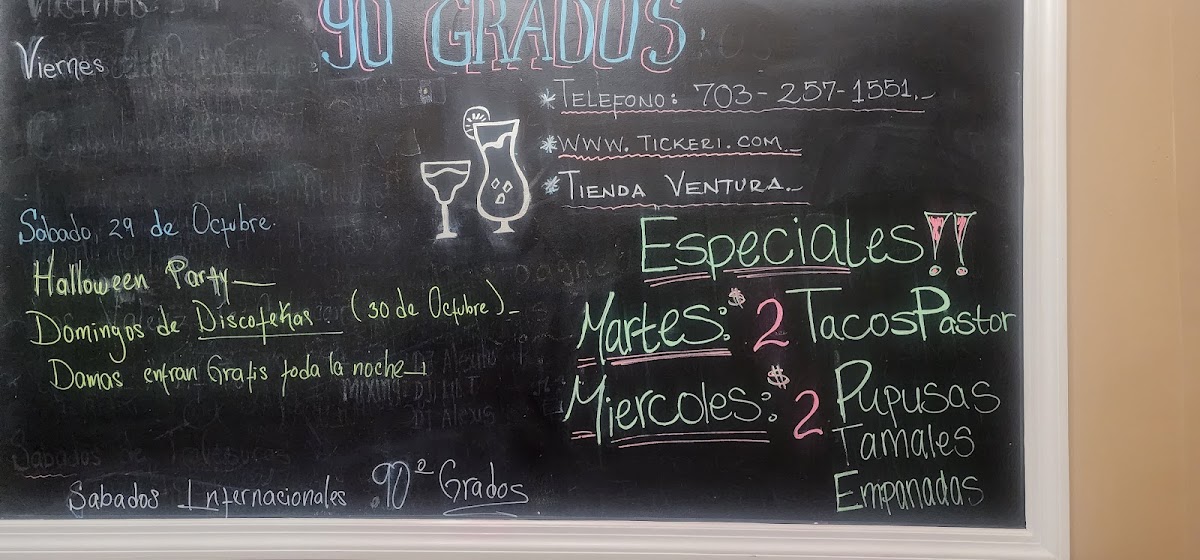 90 GRADOS
Viernes
*TELEFONO: 703-257-1551.
*WWW.TICKERI.COM
*TIENDA VENTURA.
Sabado, 29 de Octubre.
Halloween Party
Domingos de Discotekas (30 de Octubre)
Damas entran Gratis toda la noche
Especiales!!
Martes: $2 Tacos Pastor
Miercoles: $2 Pupusas
Tamales
Empanadas
Sabados Internacionales 90º Grados